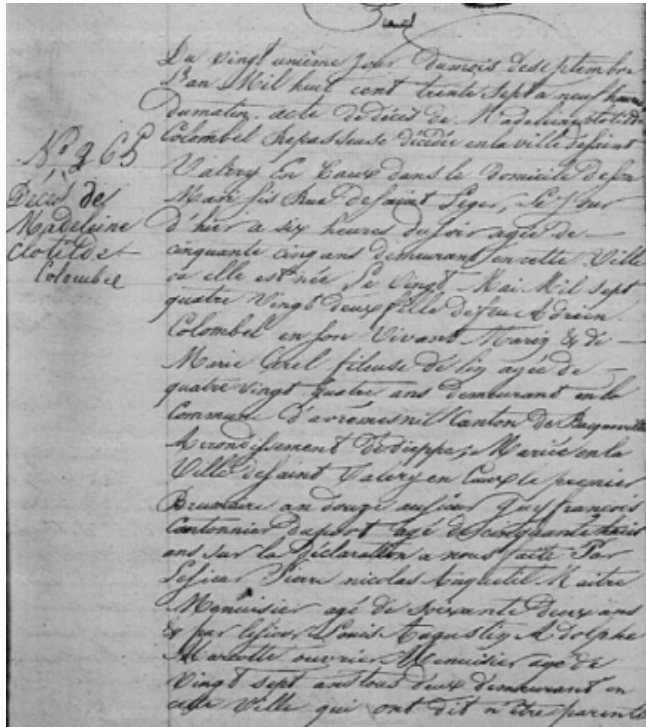 Du vingt unième jour du mois de septembre
L'an Mil huit cent trente sept a neuf heures
du matin, acte de décès de Madeleine Clotilde
Colombel Repasseuse décédée en la ville de Saint
Valery En Caux dans le domicile de son
Mari sis Rue de Saint Leger, le jour
d'hier a six heures du soir agée de
cinquante cinq ans demeurant en cette Ville
ou elle est née Le vingt Mai Mil sept
quatre Vingt deux fille de feu Adrien
Colombel en son Vivant Marin & de
Marie Cerel fileuse de lin agée de
quatre vingt quatre ans demeurant en la
Commune d'avremesnil Canton de
Arrondissement de dieppe, Mariée en la
Ville de Saint Valery en Caux le premier
Brumaire an douze au sieur Guy françois
Cantonnier du port agé de cinquante trois
ans sur la déclaration a nous faite Par
Le sieur Pierre nicolas Anquetil Maitre
Menuisier agé de soixante deux ans
& par le sieur Louis Augustin Adolphe
Marcotte ouvrier Menuisier agé de
Vingt sept ans tous deux demeurant en
cette Ville qui ont dit n'être parents
Décès de
Madeleine
Clotilde
Colombel